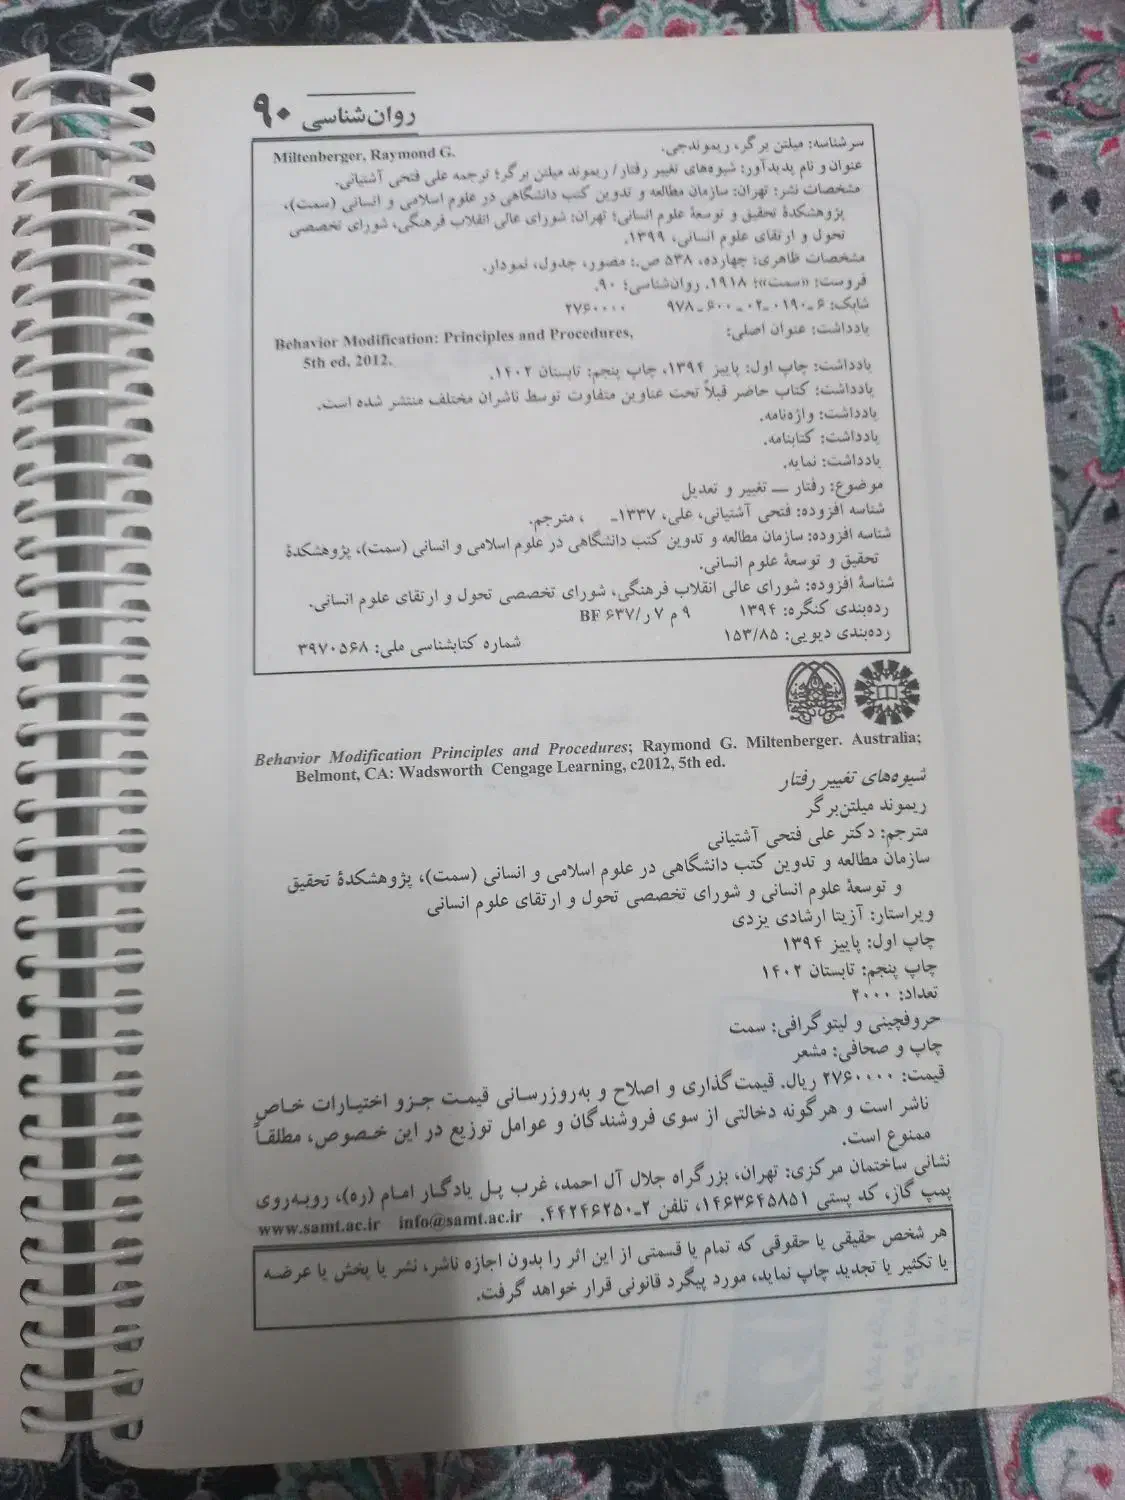 روان‌شناسی ۹۰
سرشناسه: میلتن برگر، ریموندجی. Miltenberger, Raymond G.
عنوان و نام پدیدآور: شیوه‌های تغییر رفتار/ ریموند میلتن برگر؛ ترجمه علی فتحی آشتیانی.
مشخصات نشر: تهران: سازمان مطالعه و تدوین کتب دانشگاهی در علوم اسلامی و انسانی (سمت)،
پژوهشکدهٔ تحقیق و توسعهٔ علوم انسانی؛ تهران: شورای عالی انقلاب فرهنگی، شورای تخصصی
تحول و ارتقای علوم انسانی، ۱۳۹۹.
مشخصات ظاهری: چهارده، ۵۳۸ ص.: مصور، جدول، نمودار.
فروست: «سمت»؛ ۱۹۱۸. روان‌شناسی؛ ۹۰.
شابک: ۶ـ۰۱۹۰ـ۰۲ـ۶۰۰ـ۹۷۸ ۲۷۶۰۰۰۰
یادداشت: عنوان اصلی:
Behavior Modification: Principles and Procedures,
5th ed, 2012.
یادداشت: چاپ اول: پاییز ۱۳۹۴، چاپ پنجم: تابستان ۱۴۰۲.
یادداشت: کتاب حاضر قبلاً تحت عناوین متفاوت توسط ناشران مختلف منتشر شده است.
یادداشت: واژه‌نامه.
یادداشت: کتابنامه.
یادداشت: نمایه.
موضوع: رفتار ـــ تغییر و تعدیل
شناسه افزوده: فتحی آشتیانی، علی، ۱۳۳۷ـ ، مترجم.
شناسه افزوده: سازمان مطالعه و تدوین کتب دانشگاهی در علوم اسلامی و انسانی (سمت)، پژوهشکدهٔ
تحقیق و توسعهٔ علوم انسانی.
شناسهٔ افزوده: شورای عالی انقلاب فرهنگی، شورای تخصصی تحول و ارتقای علوم انسانی.
رده‌بندی کنگره: ۱۳۹۴ ۹ م ۷ ر/۶۳۷ BF
رده‌بندی دیویی: ۱۵۳/۸۵ شماره کتابشناسی ملی: ۳۹۷۰۵۶۸
Behavior Modification Principles and Procedures; Raymond G. Miltenberger. Australia;
Belmont, CA: Wadsworth Cengage Learning, c2012, 5th ed.
شیوه‌های تغییر رفتار
ریموند میلتن‌برگر
مترجم: دکتر علی فتحی آشتیانی
سازمان مطالعه و تدوین کتب دانشگاهی در علوم اسلامی و انسانی (سمت)، پژوهشکدهٔ تحقیق
و توسعهٔ علوم انسانی و شورای تخصصی تحول و ارتقای علوم انسانی
ویراستار: آزیتا ارشادی یزدی
چاپ اول: پاییز ۱۳۹۴
چاپ پنجم: تابستان ۱۴۰۲
تعداد: ۲۰۰۰
حروفچینی و لیتوگرافی: سمت
چاپ و صحافی: مشعر
قیمت: ۲۷۶۰۰۰۰ ریال. قیمت‌گذاری و اصلاح و به‌روزرسانی قیمت جزو اختیارات خاص
ناشر است و هرگونه دخالتی از سوی فروشندگان و عوامل توزیع در این خصوص، مطلقاً
ممنوع است.
نشانی ساختمان مرکزی: تهران، بزرگراه جلال آل احمد، غرب پل یادگار امام (ره)، روبه‌روی
پمپ گاز، کد پستی ۱۴۶۳۶۴۵۸۵۱، تلفن ۲ـ۴۴۲۴۶۲۵۰. www.samt.ac.ir info@samt.ac.ir
هر شخص حقیقی یا حقوقی که تمام یا قسمتی از این اثر را بدون اجازه ناشر، نشر یا پخش یا عرضه
یا تکثیر یا تجدید چاپ نماید، مورد پیگرد قانونی قرار خواهد گرفت.